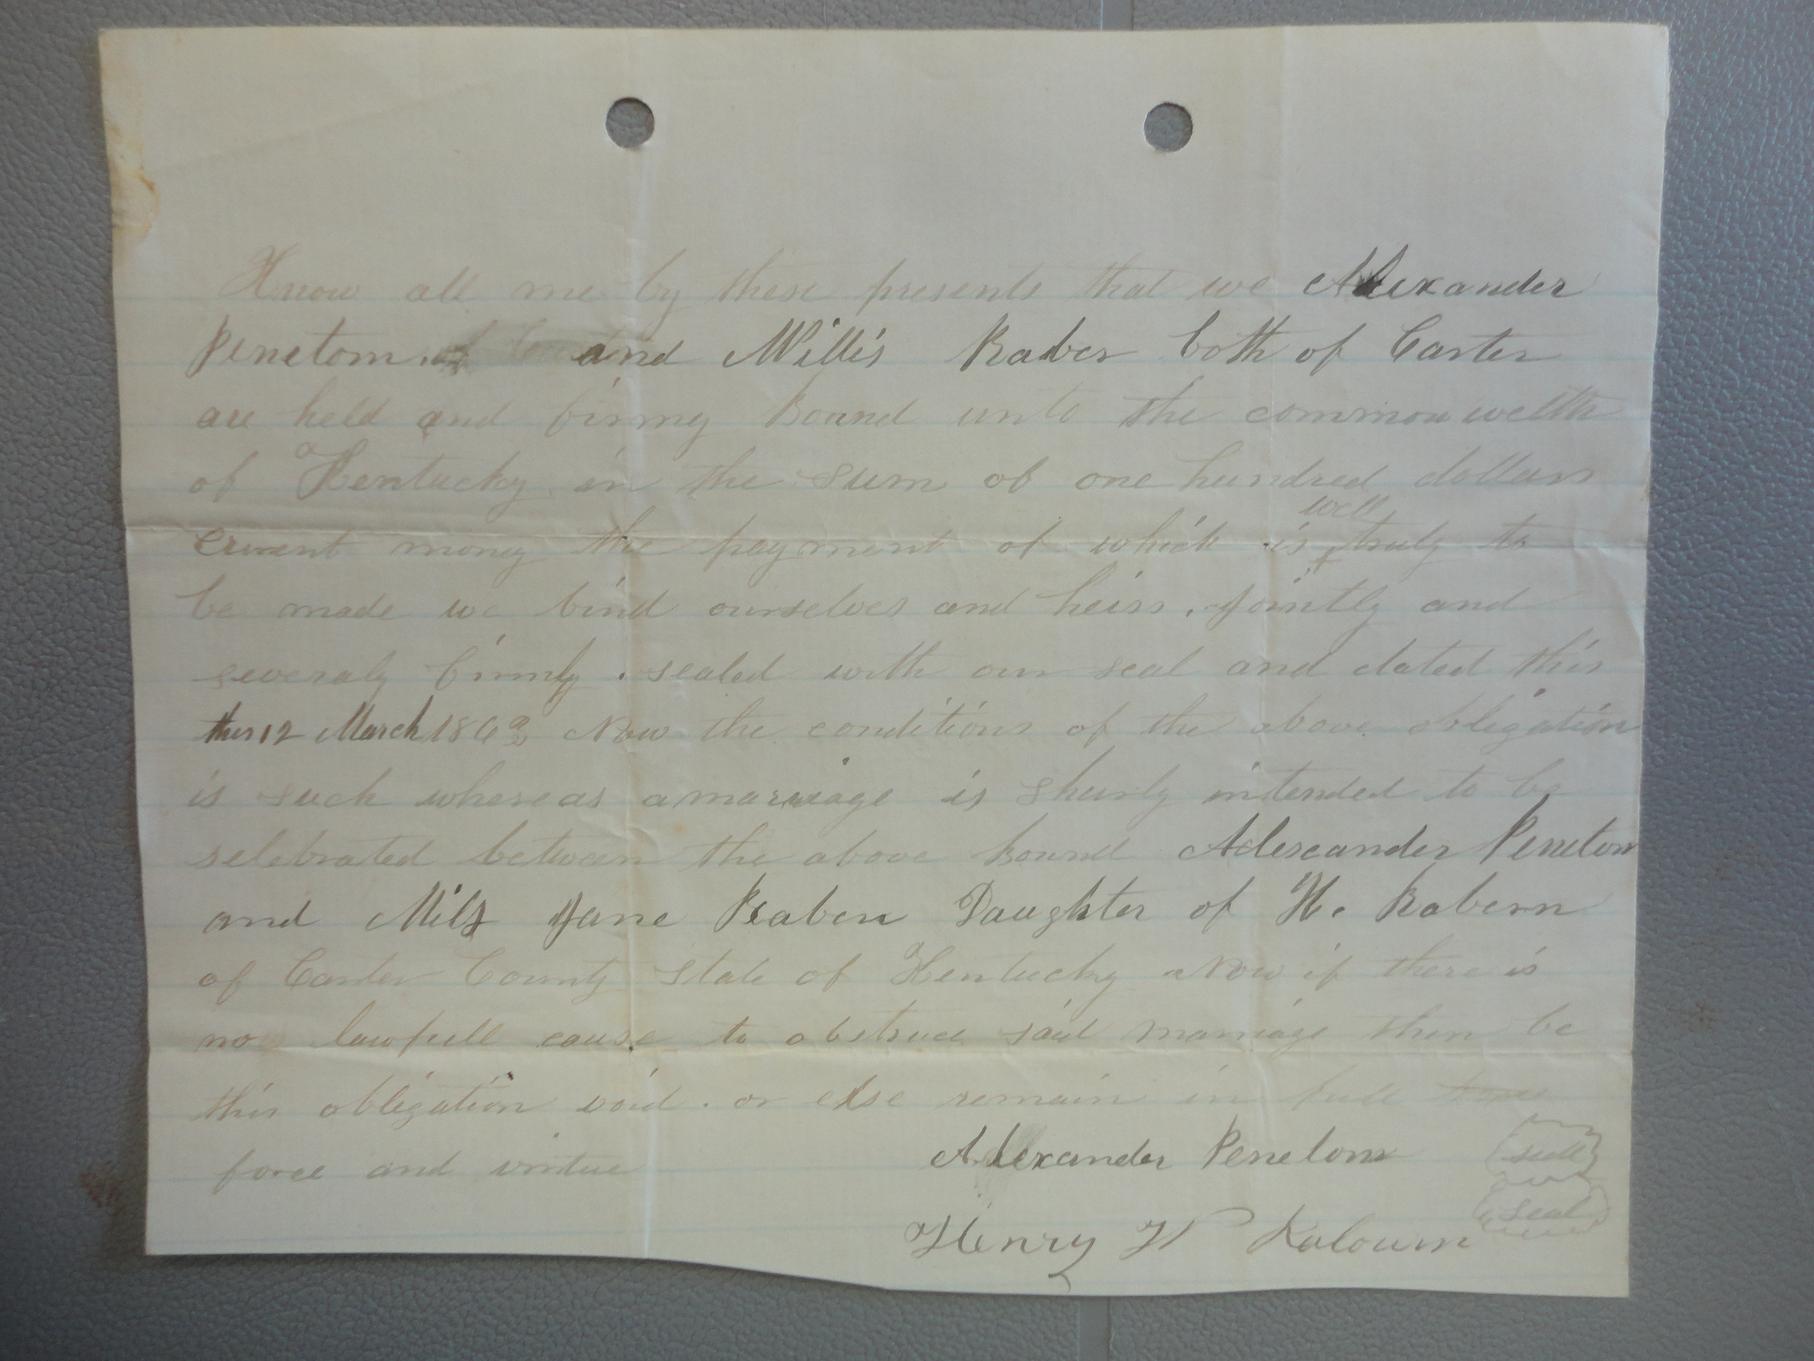 Know all me by these presents that we Alexander
Penetom and Willis Raber both of Carter
are held and firmy bound unto the commonwelth
of Kentucky in the sum of one hundred dollars
current money the payment of which is well truly to
be made we bind ourselves and heirs. jointly and
severaly firmly. sealed with our seal and dated this
this 12 March 186 Now the conditions of the above obligation
is such whereas a marriage is shurly intended to be
selebrated between the above bound Alexander Peneton
and Jane Raben Daughter of H. Rabern
of Carter County State of Kentucky Now if there is
no lawfull cause to obstruct said marriage then be
this obligation void. or else remain in full
force and virtue
Alexander Penetom seal
Henry seal